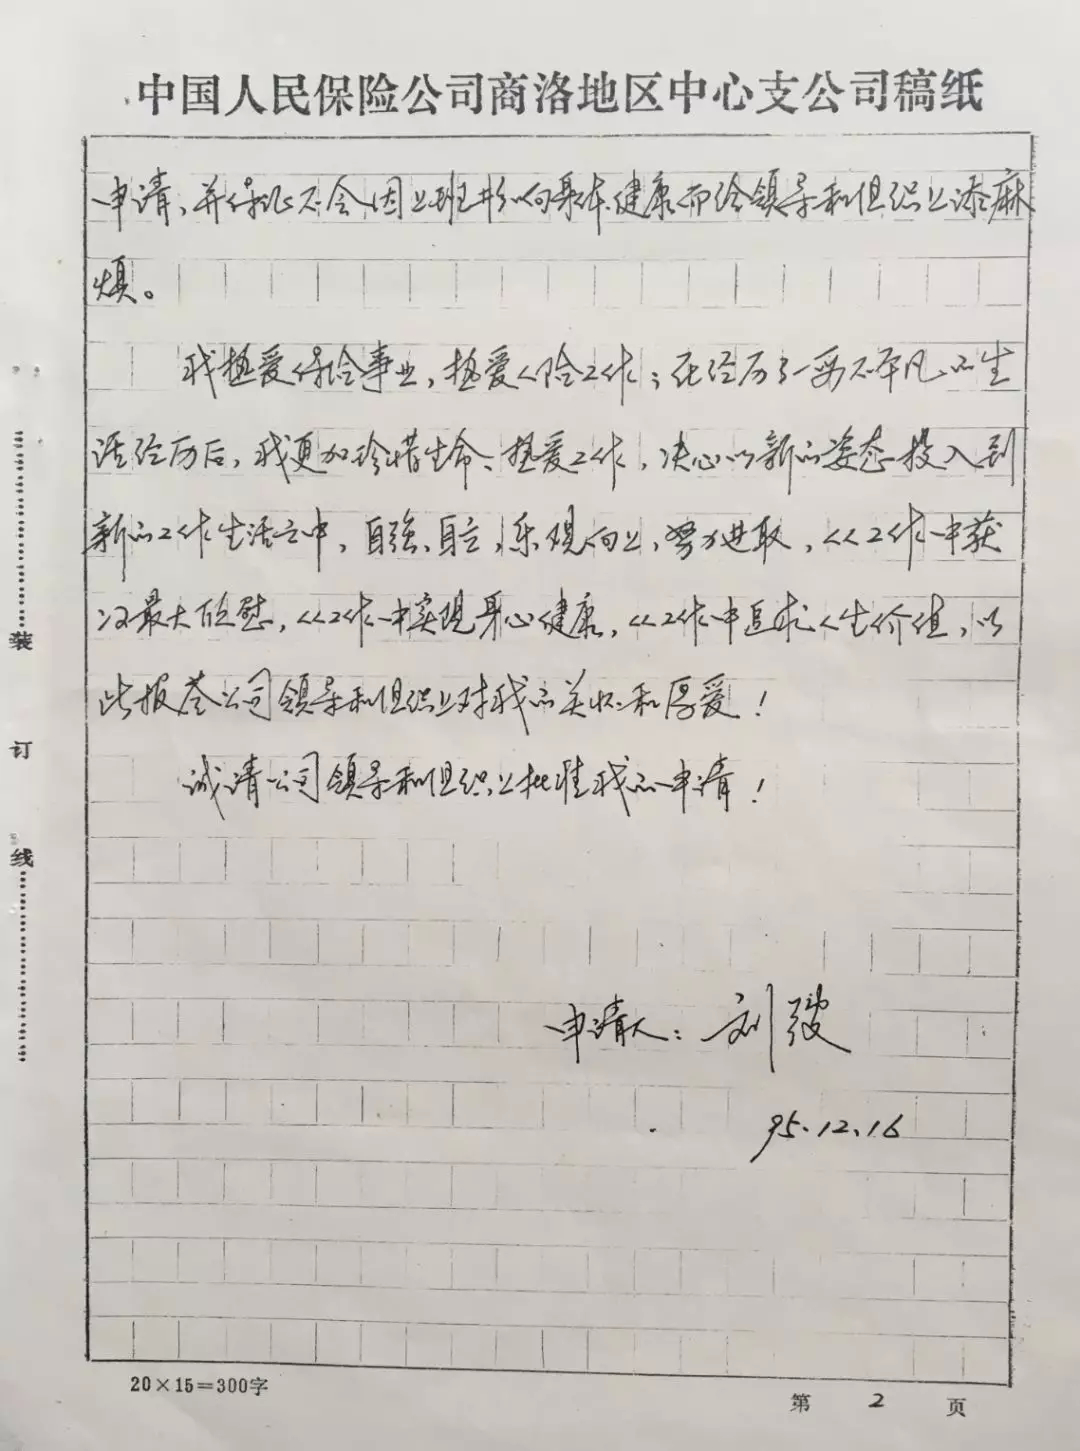 中国人民保险公司商洛地区中心支公司稿纸
申请、并保证不会因上班影响身体健康而给领导和组织上添麻
烦。
我热爱保险事业，热爱人险工作；在经历了一番不平凡的生
活经历后，我更加珍惜生命、热爱工作，决心以新的姿态投入到
新的工作生活之中，自强、自立，乐观向上，努力进取，从工作中获
得最大欣慰，从工作中实现身心健康，从工作中追求人生价值，以
此报答公司领导和组织上对我的关怀和厚爱！
诚请公司领导和组织上批准我的申请！
申请人：刘
95.12.16
装
订
线
20×15=300字
第 2 页